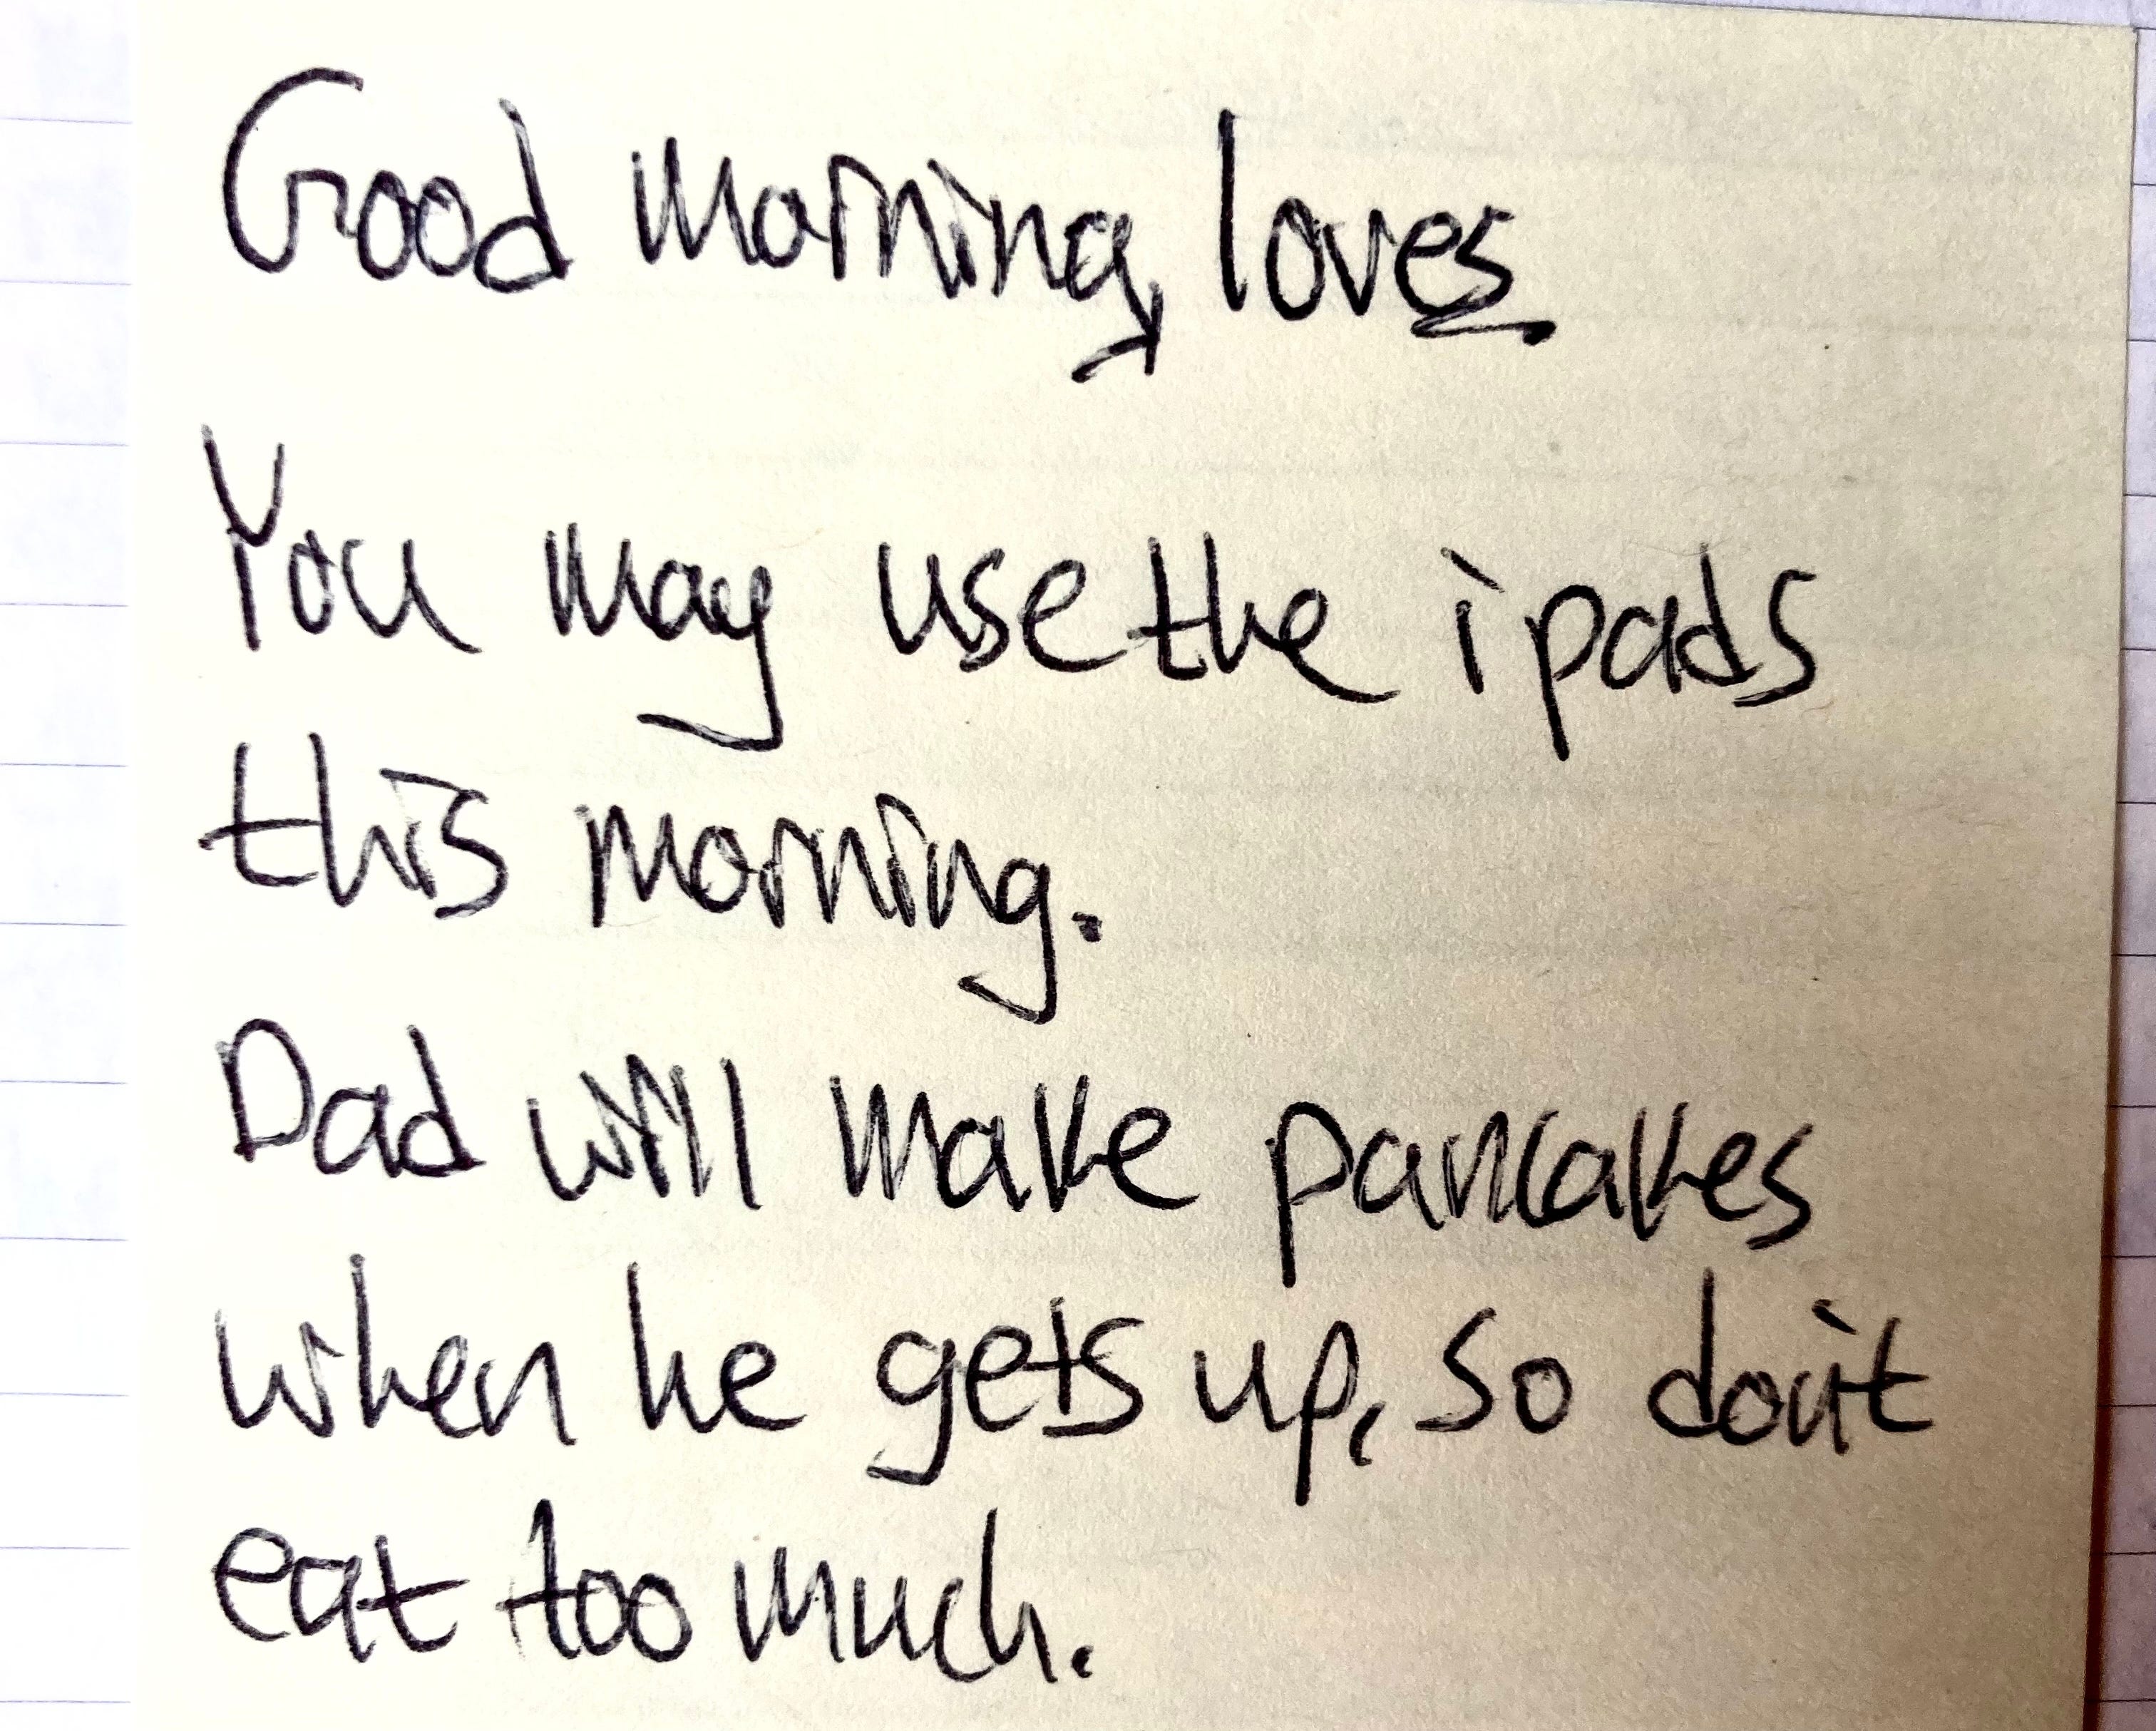 Good morning, loves
You may use the ipads
this morning.
Dad will make pancakes
when he gets up, so don't
eat too much.